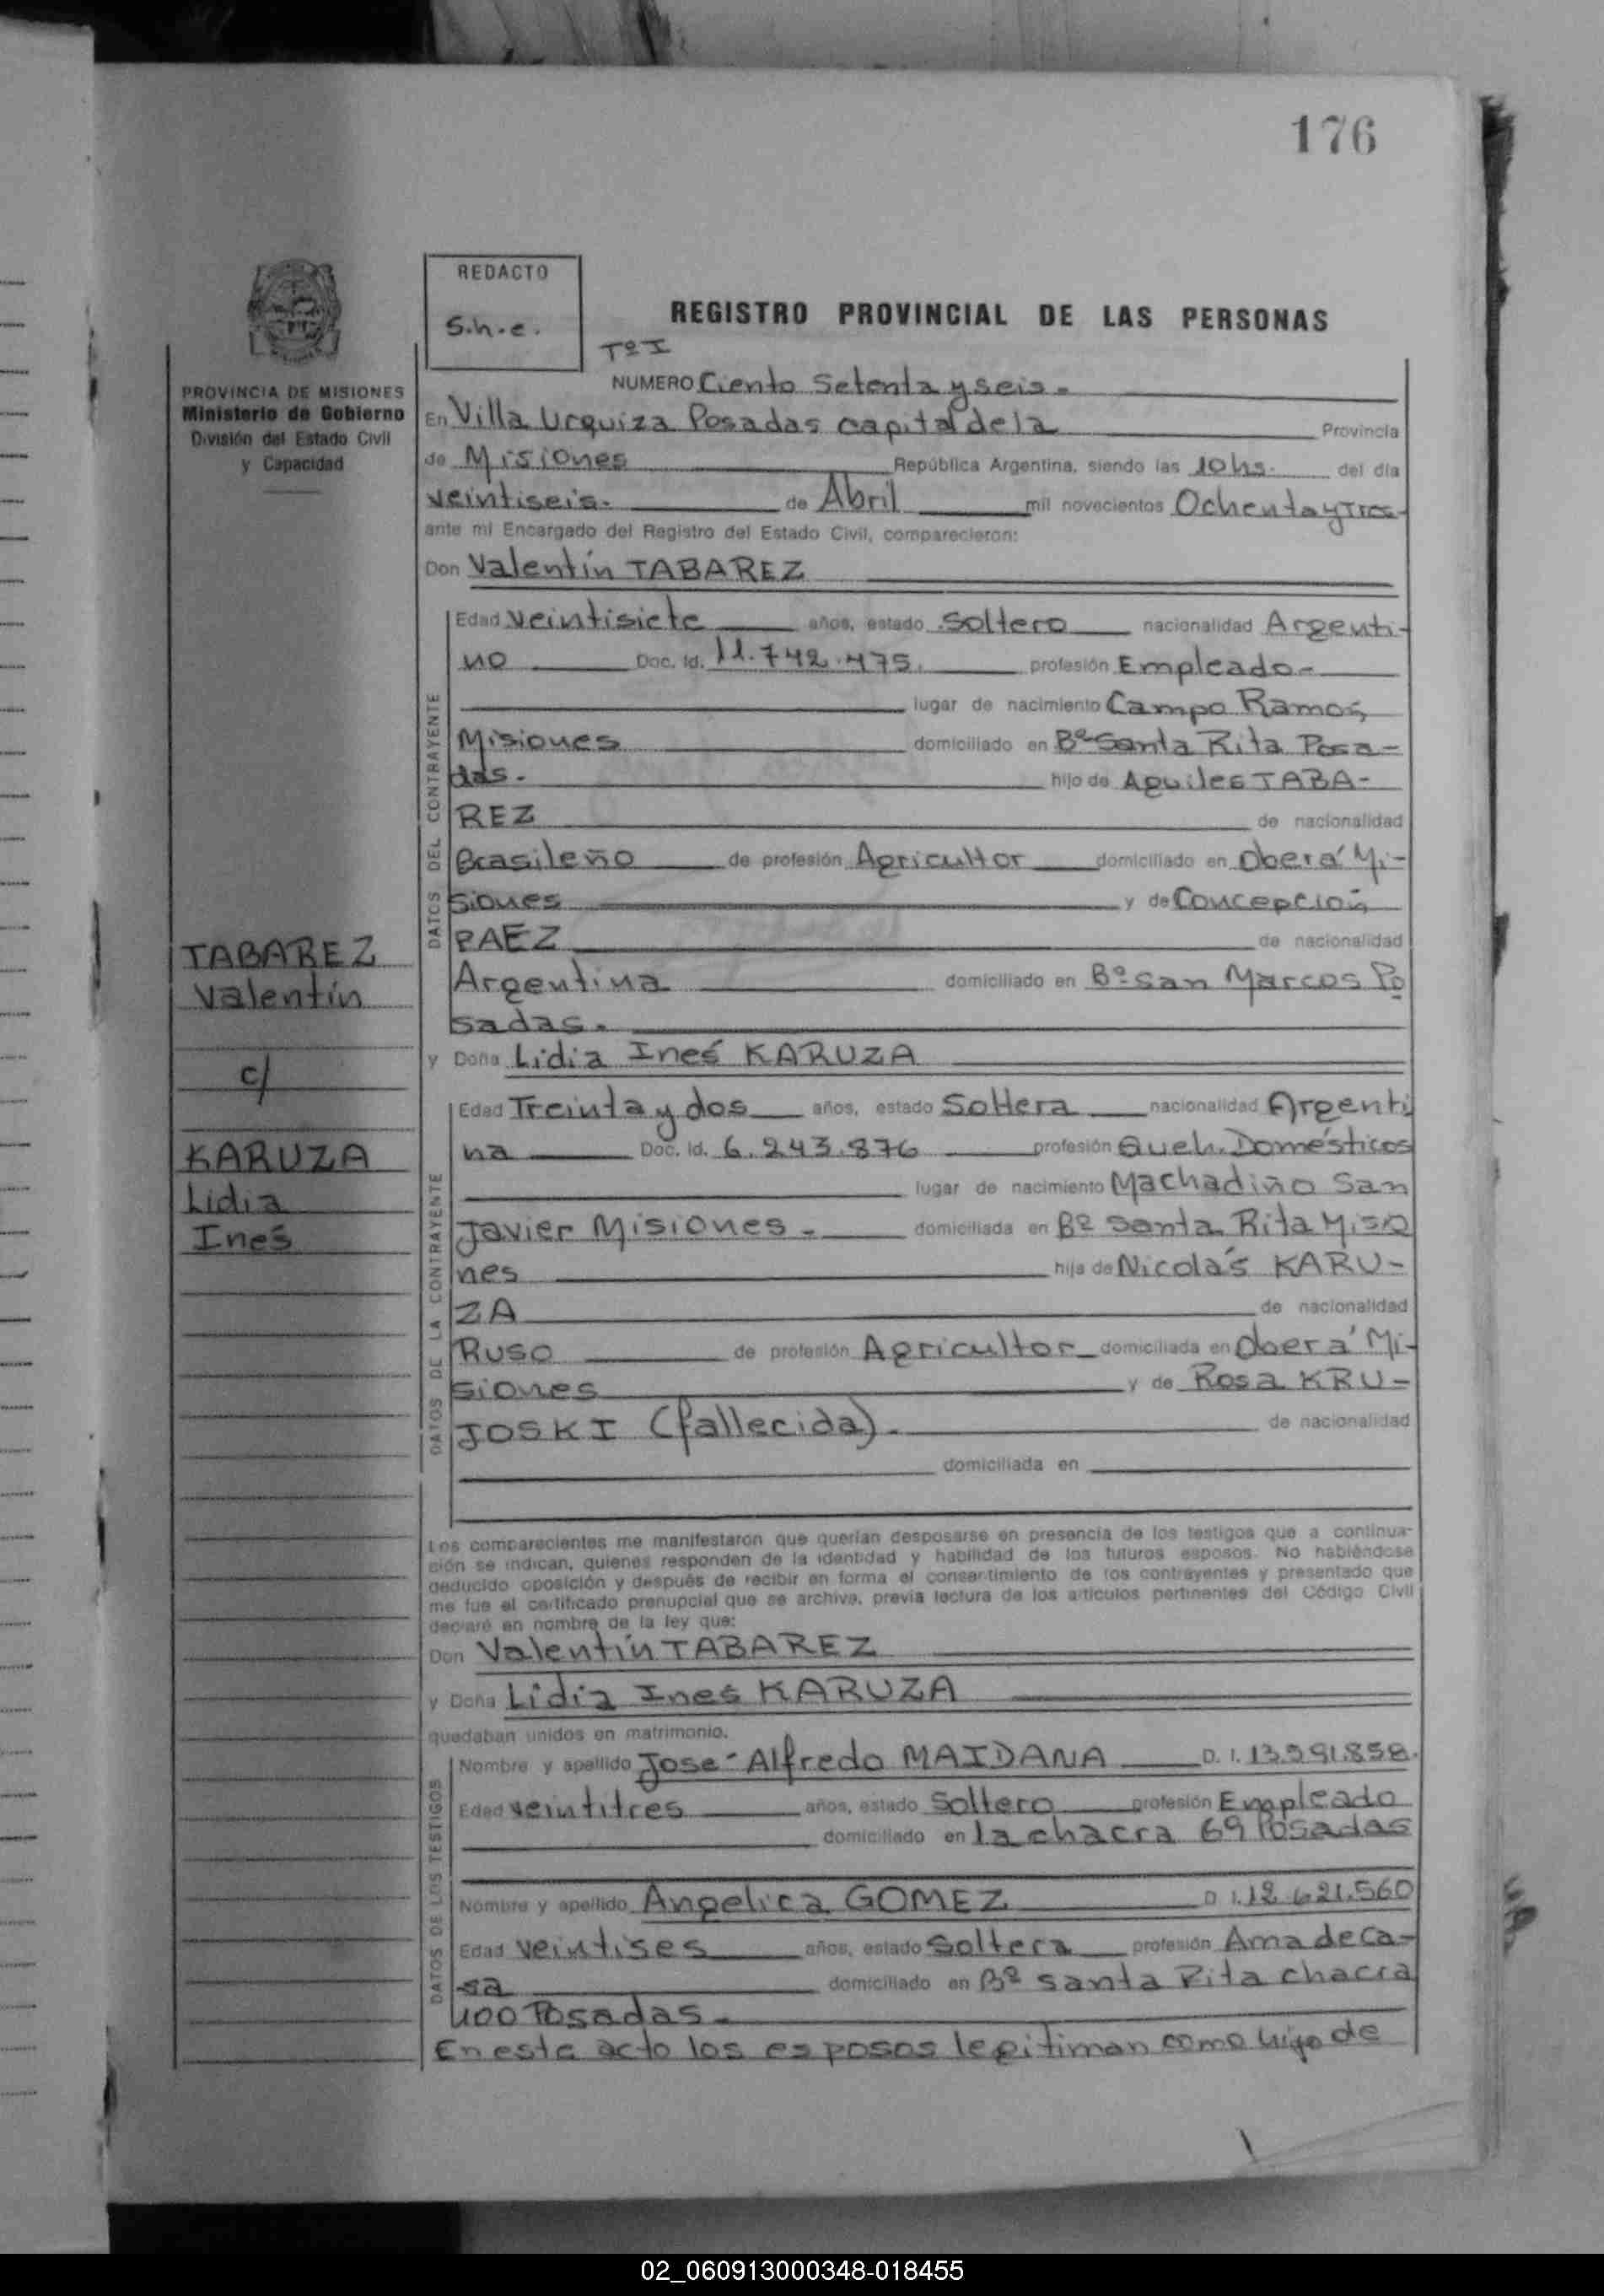 176
REDACTO
S.h.e.
REGISTRO PROVINCIAL DE LAS PERSONAS
Tº I
PROVINCIA DE MISIONES
Ministerio de Gobierno
División del Estado Civil
y Capacidad
NUMERO Ciento Setenta y seis.
En Villa Urquiza Posadas capital de la Provincia
de Misiones República Argentina, siendo las 10 hs. del día
veintiseis. de Abril mil novecientos Ochenta y Tres
ante mí Encargado del Registro del Estado Civil, comparecieron:
Don Valentín TABAREZ
DATOS DEL CONTRAYENTE
Edad veintisiete años, estado Soltero nacionalidad Argenti-
no Doc. Id. 11.742.475. profesión Empleado-
lugar de nacimiento Campo Ramos,
Misiones domiciliado en Bº Santa Rita Posa-
das. hijo de Aquiles TABA-
REZ de nacionalidad
Brasileño de profesión Agricultor domiciliado en Oberá Mi-
siones y de Concepción
PAEZ de nacionalidad
Argentina domiciliado en Bº San Marcos Po
sadas.
TABAREZ
Valentín
c/
KARUZA
Lidia
Inés
y Doña Lidia Inés KARUZA
DATOS DE LA CONTRAYENTE
Edad Treinta y dos años, estado Soltera nacionalidad Argenti
na Doc. Id. 6.243.876 profesión Queh. Domésticos
lugar de nacimiento Machadiño San
Javier Misiones - domiciliada en Bº Santa Rita Misio
nes hija de Nicolás KARU-
ZA de nacionalidad
Ruso de profesión Agricultor domiciliada en Oberá Mi-
siones y de Rosa KRU-
JOSKI (fallecida). de nacionalidad
domiciliada en
Los comparecientes me manifestaron que querían desposarse en presencia de los testigos que a continua-
ción se indican, quienes responden de la identidad y habilidad de los futuros esposos. No habiéndose
deducido oposición y después de recibir en forma el consentimiento de los contrayentes y presentado que
me fue el certificado prenupcial que se archiva, previa lectura de los artículos pertinentes del Código Civil
declaré en nombre de la ley que:
Don Valentín TABAREZ
y Doña Lidia Inés KARUZA
quedaban unidos en matrimonio.
DATOS DE LOS TESTIGOS
Nombre y apellido José Alfredo MAIDANA D. I. 13.591.858.
Edad veintitres años, estado Soltero profesión Empleado
domiciliado en la chacra 69 Posadas
Nombre y apellido Angelica GOMEZ D. I. 12.621.560
Edad veintises años, estado Soltera profesión Ama de Ca-
sa domiciliado en Bº Santa Rita chacra
400 Posadas.
En este acto los esposos legitiman como hijo de
02_060913000348-018455